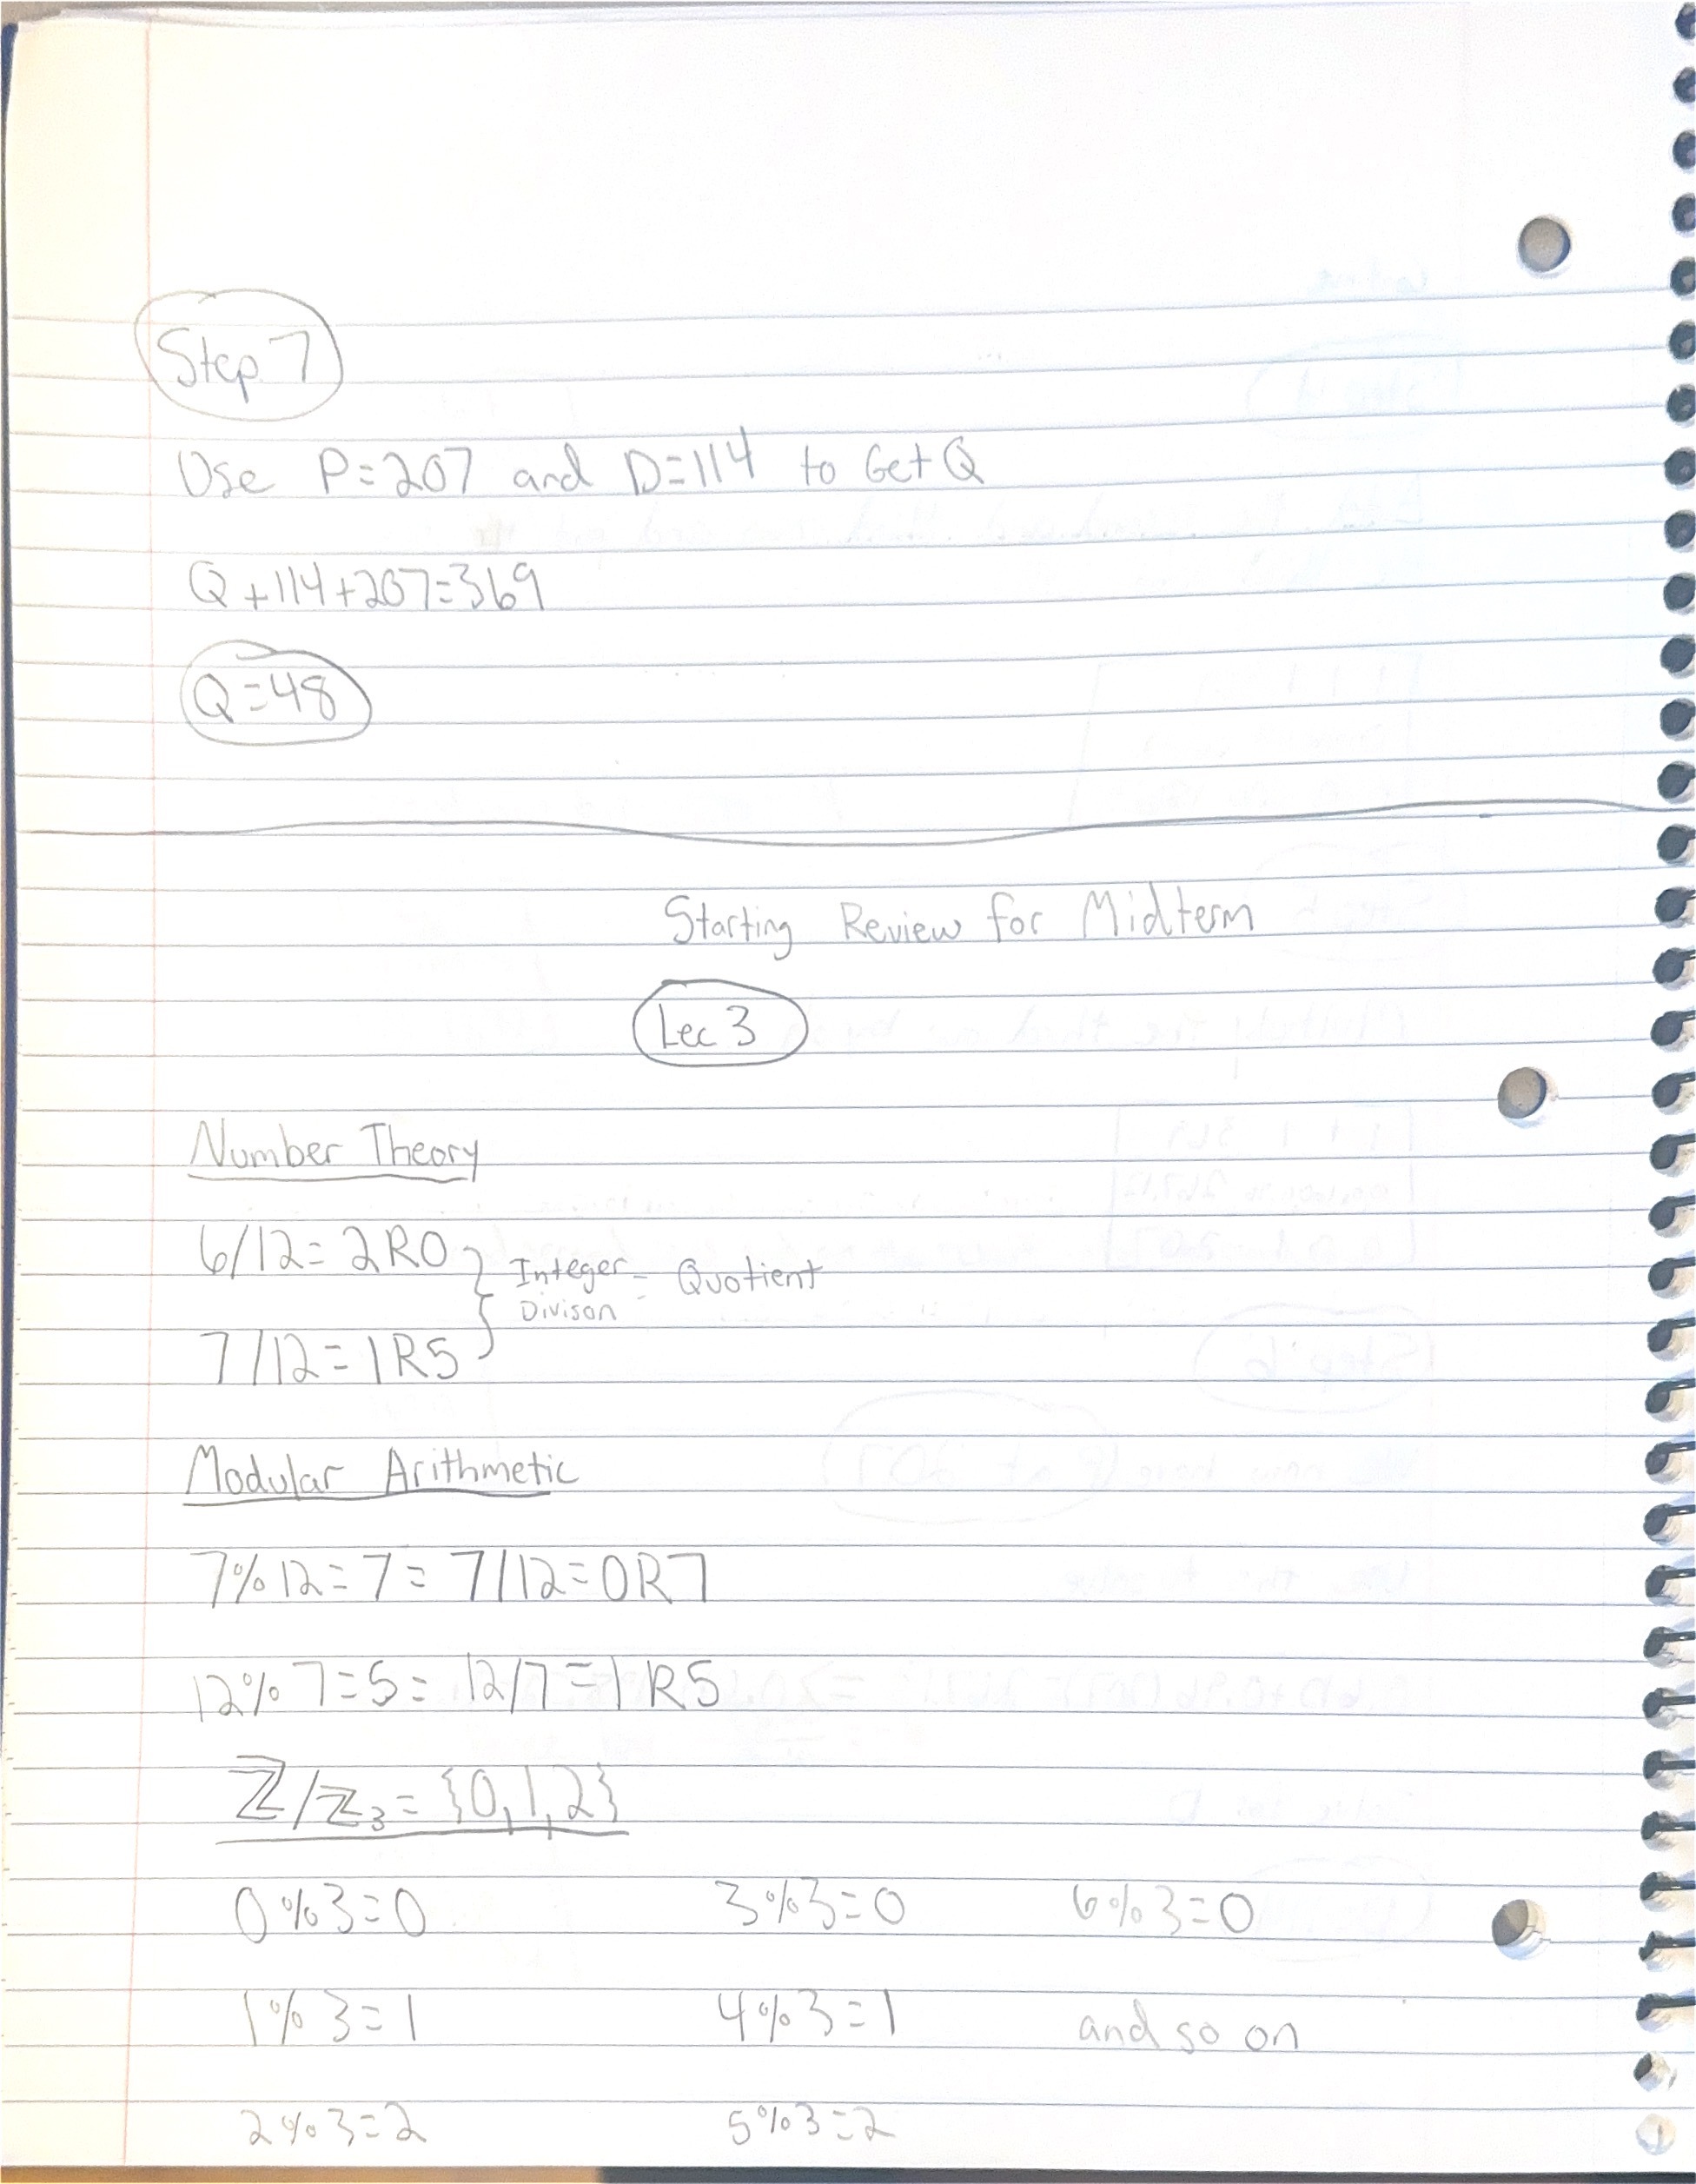 Step 7
Use P=207 and D=114 to Get Q
Q+114+207=369
Q=48
Starting Review for Midterm
Lec 3
Number Theory
6/12=2R0
7/12=1R5
Integer Divison = Quotient
Modular Arithmetic
7%12=7=7/12=0R7
12%7=5=12/7=1R5
ℤ/ℤ₃={0,1,2}
0%3=0 3%3=0 6%3=0
1%3=1 4%3=1 and so on
2%3=2 5%3=2